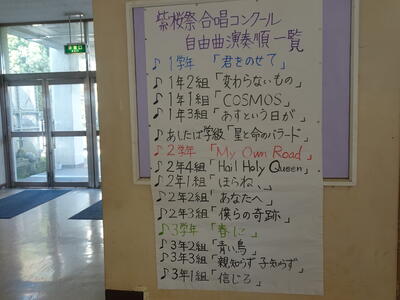 紫桜祭 合唱コンクール
自由曲演奏順一覧
♪1学年「君をのせて」
♪1年2組「変わらないもの」
♪1年1組「COSMOS」
♪1年3組「あすという日が」
♪あしたば学級「星と命のバラード」
♪2学年「My Own Road」
♪2年4組「Hail Holy Queen」
♪2年1組「ほらね、」
♪2年2組「あなたへ」
♪2年3組「僕らの奇跡」
♪3学年「春に」
♪3年2組「青い鳥」
♪3年3組「親知らず子知らず」
♪3年1組「信じる」